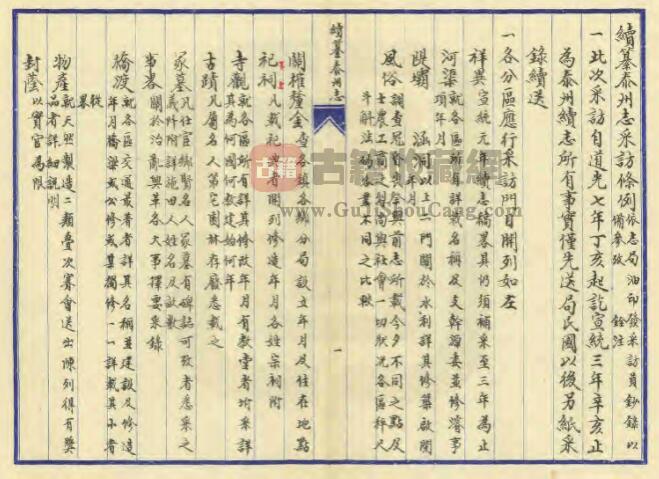 續纂泰州志采訪條例依志局油印發采訪員鈔錄以備參攷 銓注
一此次采訪自道光七年丁亥起訖宣統三年辛亥止
為泰州續志所有事實僅先送局民國以後另紙采
錄續送
一各分區應行采訪門目開列如左
祥異宣統元年續志稿畧具仍須補采至三年為止
河渠就各區所有詳載名稱及支幹
項年月
隄壩 涵洞以上二門關於水利詳其修築啟閉
年月
風俗調查冠昏喪祭與前志所載今夕不同之點及
士農工商之習尚與社會一切狀況各區秤尺
斗解法碼各畫不同之比較
續纂泰州志
一
關榷釐金查各項各城分局設立年月及住在地點
祠祀凡載祀典者開列修造年月各姓宗祠附
寺觀就各區所有詳其修改年月有教堂者附采詳
其為何國何教建始何年
古蹟凡屬名人第宅園林存廢悉載之
冢墓凡仕宦鄉賢名人冢墓有碑誌可攷者悉采之
義阡附詳施田人姓名及畝數
事畧關於治亂興革各大事擇要采錄
橋渡就各區交通最著者詳其名稱並建設及修造
年月橋梁或公修或某獨修一一詳載其小者
從畧
物產就天然製造二類疊次賽會送出陳列得有獎
品者詳細說明
封蔭以實官為限
古籍 收藏網
www.GujiShouCang.com